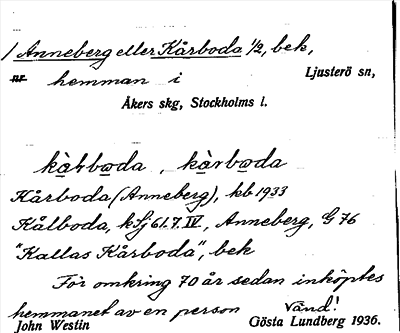 1 Anneberg eller Kårboda ½, bek,
nr hemman i Ljusterö sn,
Åkers skg, Stockholms l.
kårboda
Kårboda (Anneberg), kb 1933
Kålboda, kSj 61.7.IV, Anneberg, G 76
"Kallas Kårboda", bek
För omkring 70 år sedan inköptes
hemmanet av en person Vänd!
John Westin Gösta Lundberg 1936.